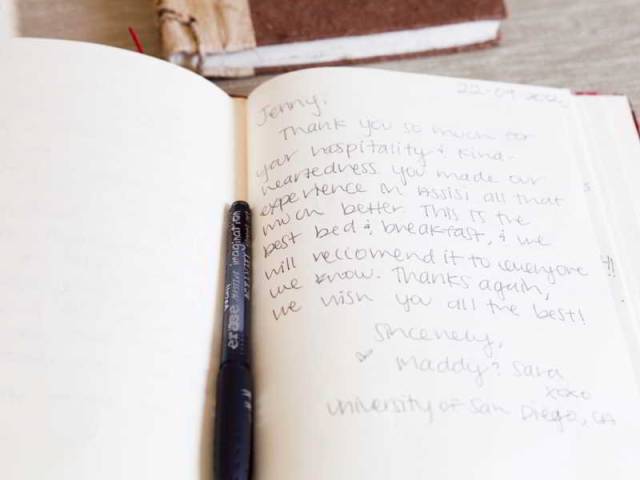 22-09
Jenny,
Thank you so much for
your hospitality & kind-
heartedness you made our
experience in Assisi all that
much better. This is the
best bed & breakfast, & we
will reccomend it to everyone
we know. Thanks again,
we wish you all the best!
Sincerely,
Maddy & Sara
xoxo
University of San Diego, CA
erase your imagination